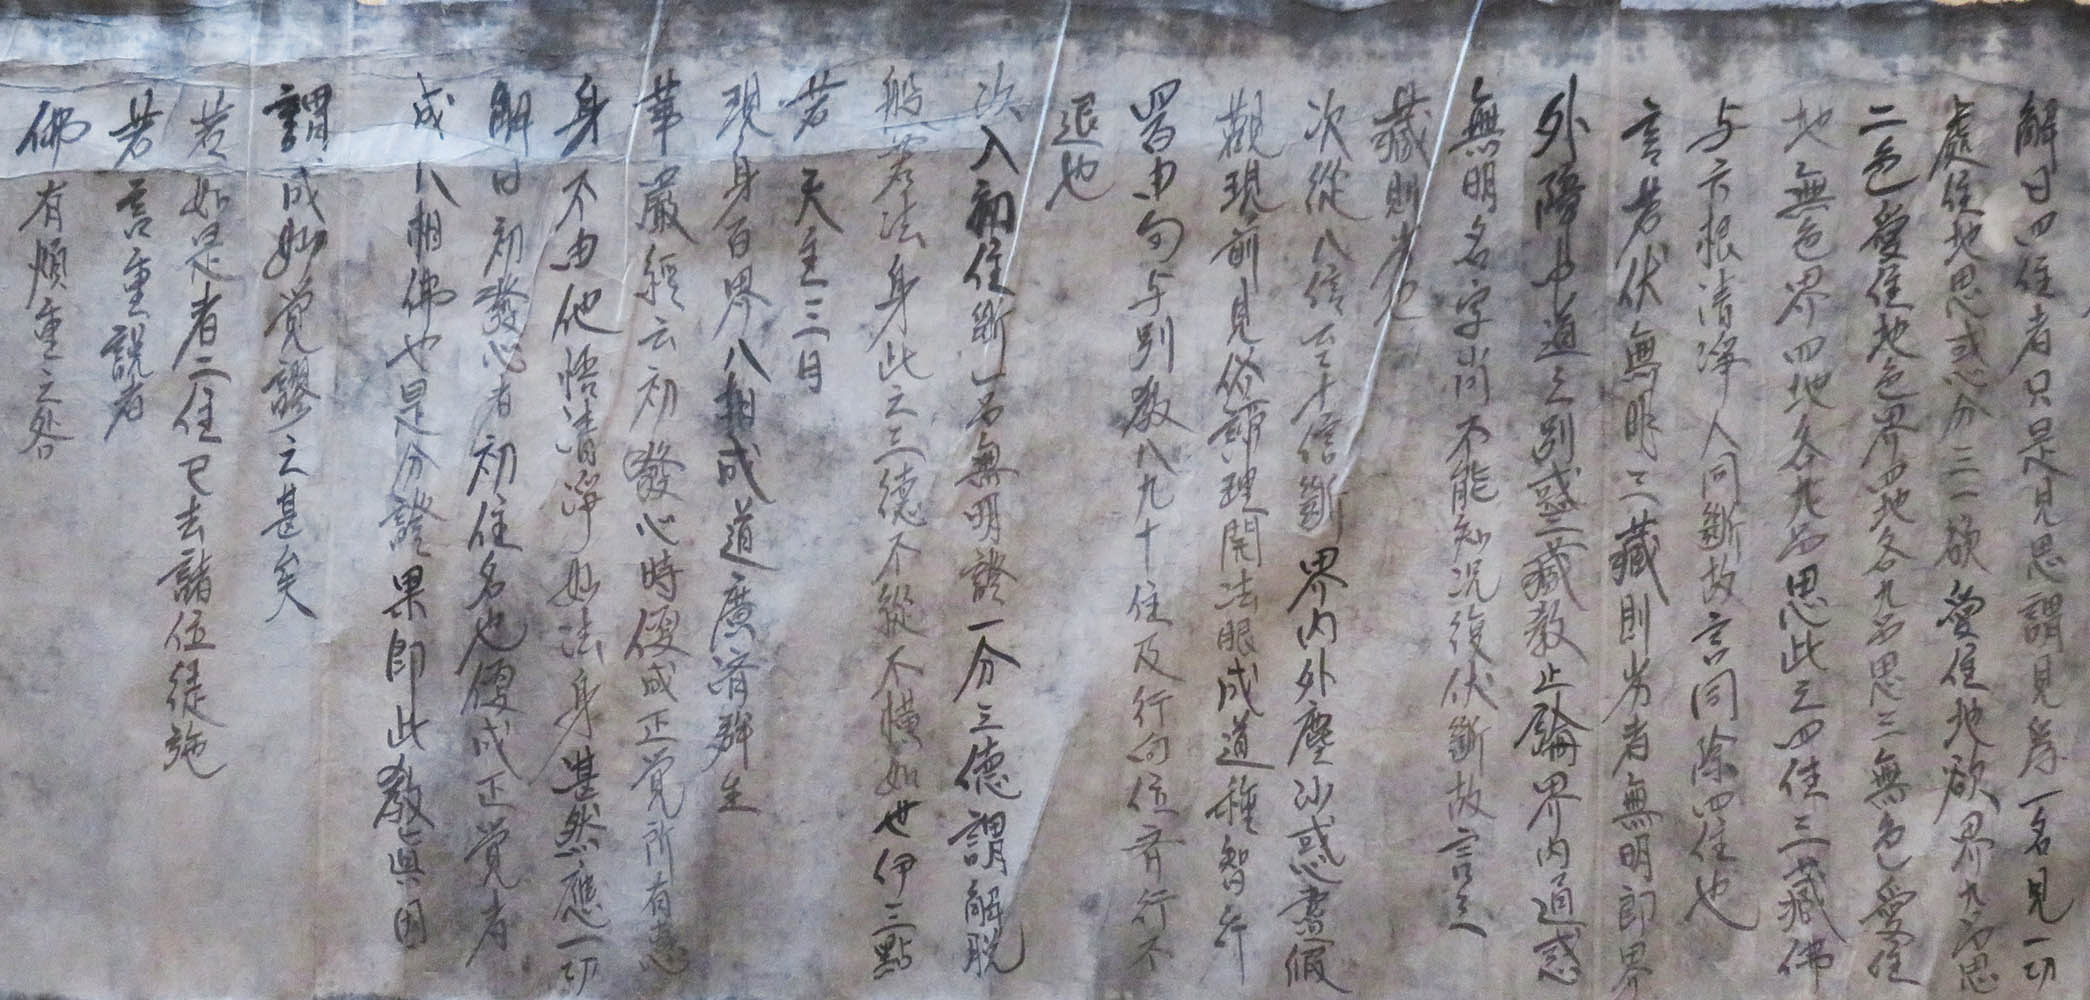 解曰四住者只是見思謂見為一名見一切
處住地思惑分三一欲愛住地欲界九品思
二色愛住地色界四地各九品思三無色愛住
地無色界四地各九品思此之四住三藏佛
与六根清淨人同斷故言同除四住也
言若伏無明三藏則劣者無明即界
外障中道之別惑三藏教止論界內通惑
無明名字尚不能知況復伏斷故言三
藏則劣也
次從八信至十信斷界內外塵沙惑盡假
觀現前見俗諦理開法眼成道種智行
与別教八九十住及行向位齊行不
退也
次入初住斷一品無明證一分三德謂解脫
般若法身此之三德不縱不橫如世伊三點
若天主三目
現身百界八相成道廣濟群生
華嚴經云初發心時便成正覺所有慧
身不由他悟清淨妙法身甚然應一切
解曰初發心者初住名也便成正覺者
成八相佛也是分證果即此教真因
謂成妙覺謬之甚矣
若如是者二住已去諸位徒施
若言重說者
佛有煩重之咎